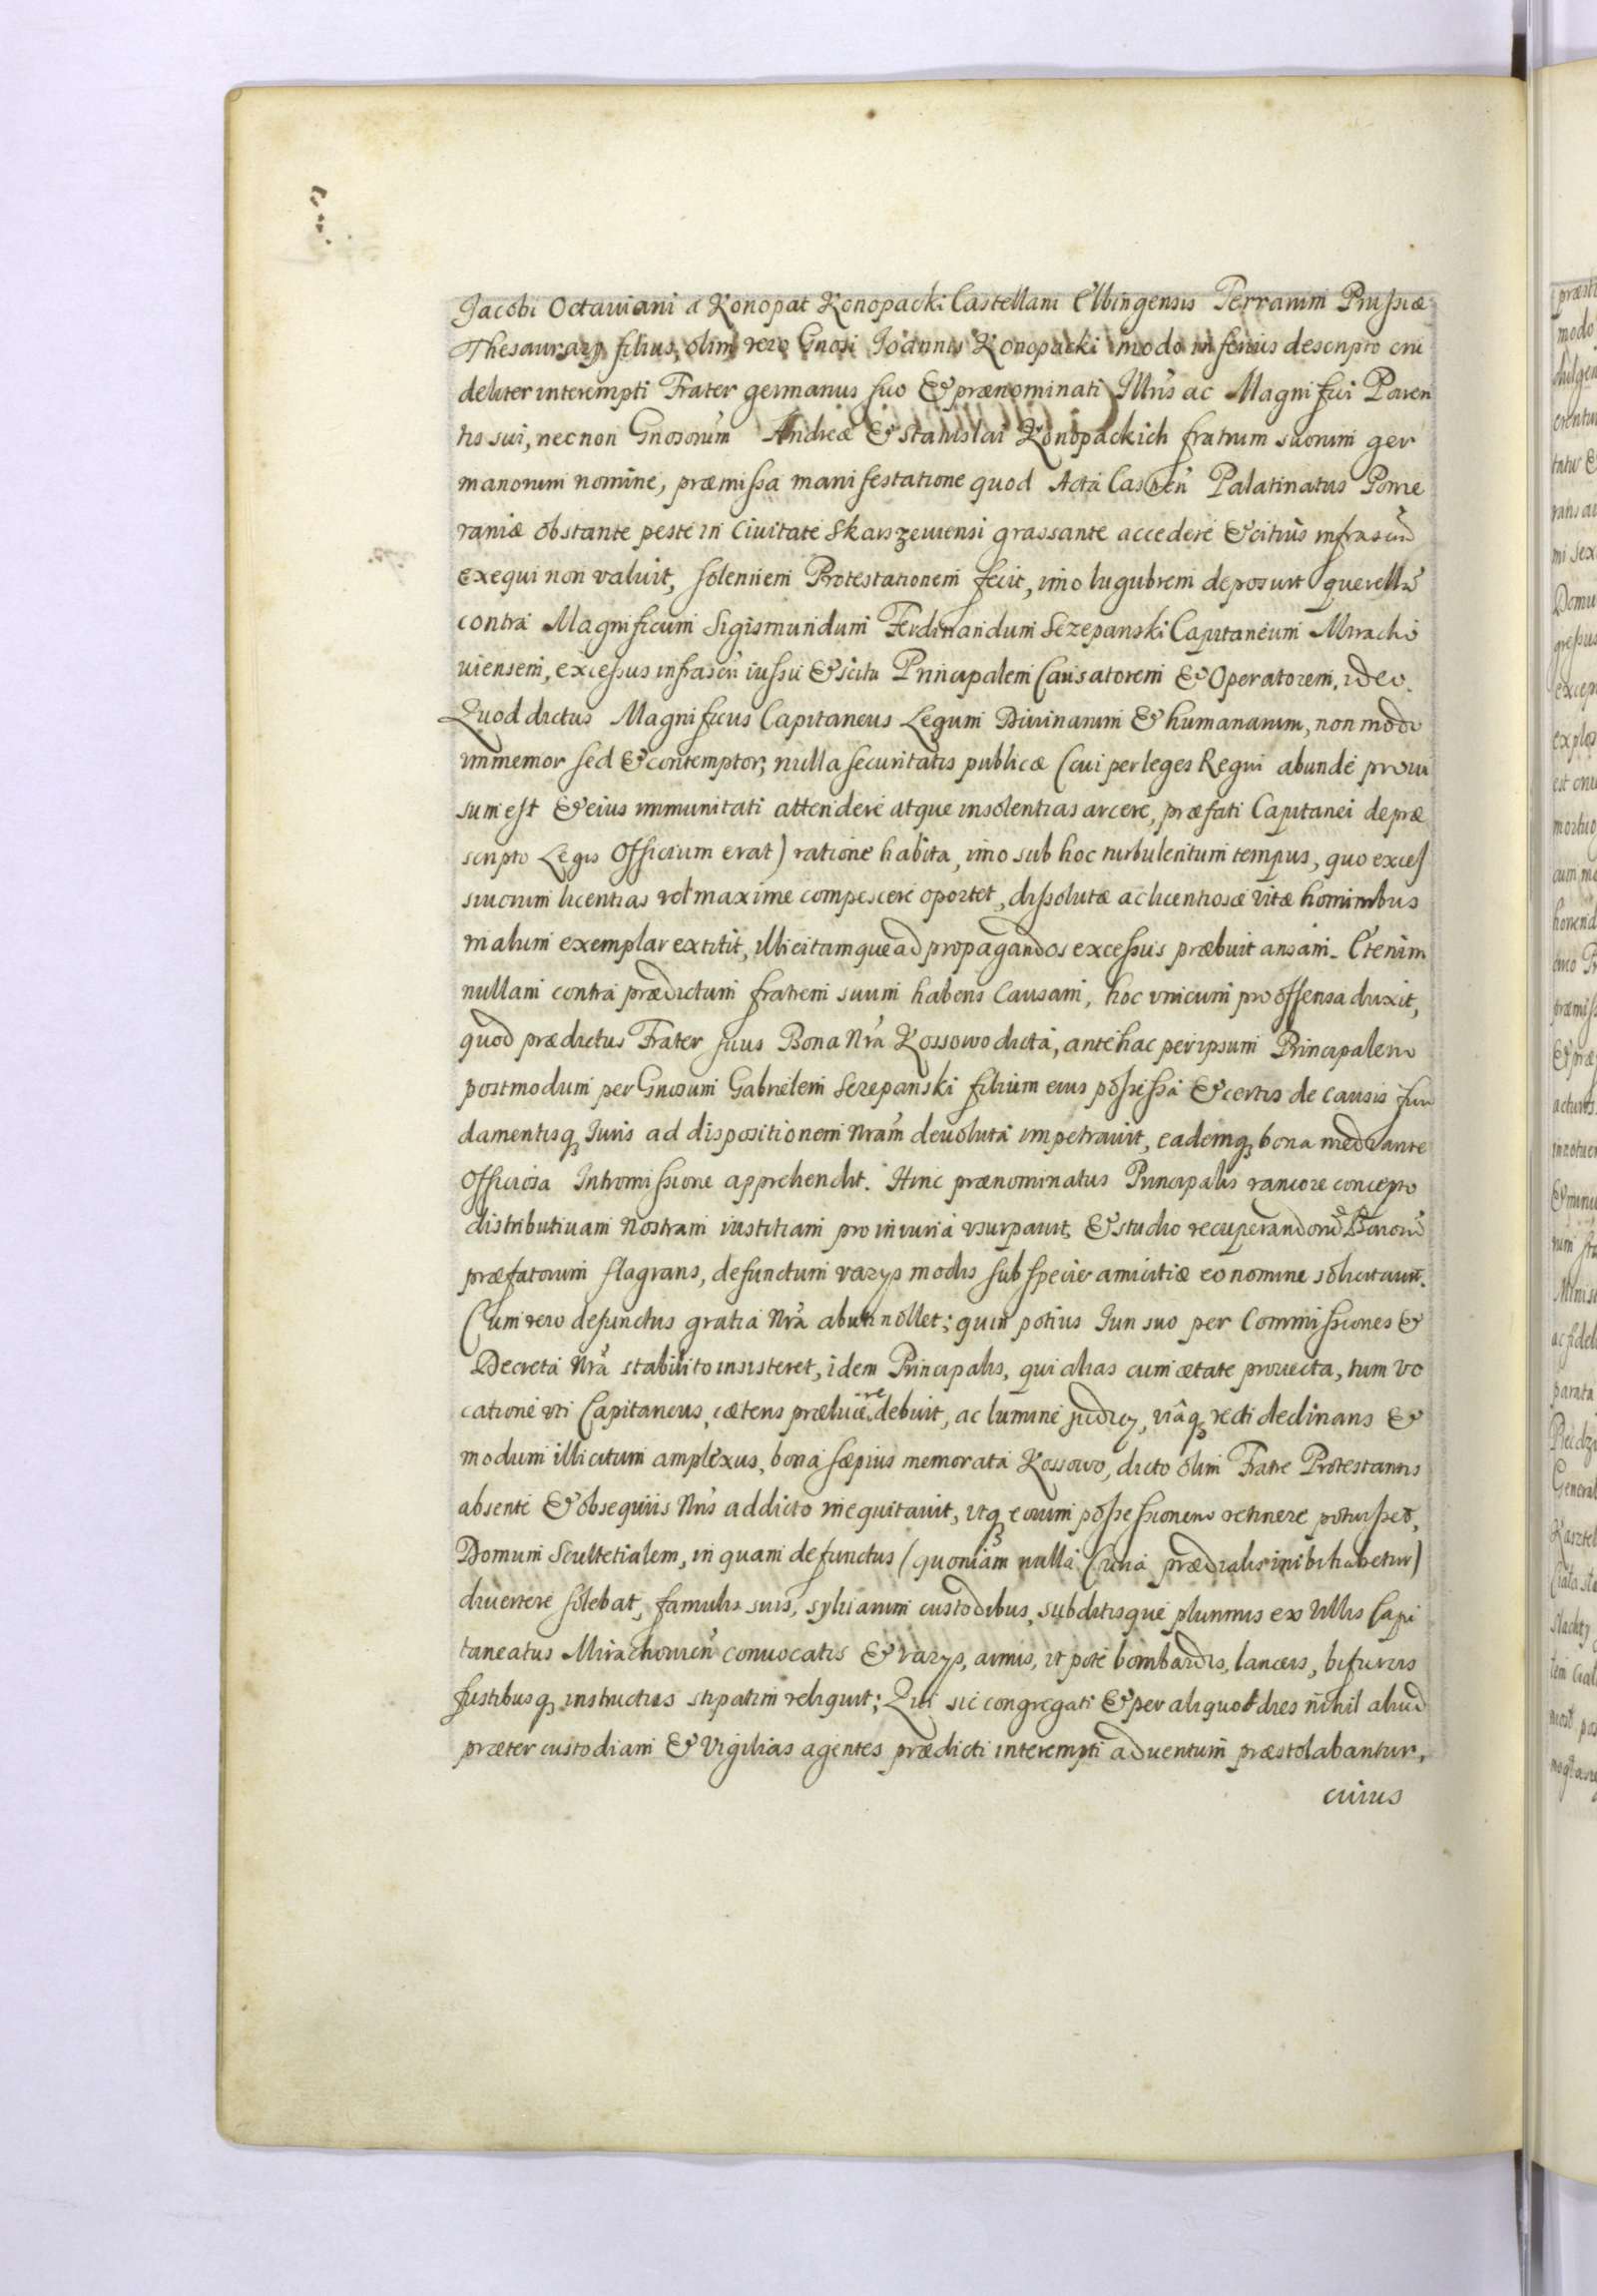 Jacobi Octauiani a Konopat Konopacki Castellani Elbingensis Terrarum Prussiæ
Thesaurarij filius, olim vero Gnosi Joannis Konopacki modo inferius descripto cru
deliter interempti Frater germanus suo & prænominati Illris ac Magnifici Paren
tis sui, nec non Gnosorum Andreæ & Stanislai Konopackich fratrum suorum ger
manorum nomine, præmissa manifestatione quod Acta Castren Palatinatus Pome
raniæ obstante peste in Ciuitate Skarszeuiensi grassante accedere & citius infrascrip
exequi non valuit, solennem Protestationem fecit, imo lugubrem deposuit querellã
contra Magnificum Sigismundum Ferdinandum Sczepanski Capitaneum Miracho
uiensem, excessus infrascri iussu & scitu Principalem Causatorem & Operatorem, ideo.
Quod dictus Magnificus Capitaneus Legum Diuinarum & humanarum, non modo
immemor sed & contemptor; nulla securitatis publicæ (cui per leges Regni abunde proui
sum est & eius immunitati attendere atque insolentias arcere, præfati Capitanei depræ
scripto Legis Officium erat) ratione habita, imo sub hoc turbulentum tempus, quo exces
siuorum licentias vel maxime compescere oportet, dissolutæ ac licentiosæ vitæ hominibus
malum exemplar extitit, illicitamque ad propagandos excessus præbuit ansam. Etenim
nullam contra prædictum fratrem suum habens Causam, hoc vnicum pro offensa duxit,
quod prædictus Frater suus Bona Nra Kossowo dicta, antehac per ipsum Principalem
postmodum per Gnosum Gabrielem Sczepanski filium eius possessa & certis de causis fun
damentisq Iuris ad dispositionem Nram deuoluta impetrauit, eademq bona mediante
Officiosa Intromissione apprehendit. Hinc prænominatus Principalis rancore concepto
distributiuam Nostram iustitiam pro iniuria vsurpauit, & studio recuperandorũ Bonorũ
præfatorum flagrans, defunctum varijs modis sub specie amicitiæ eo nomine solicitauit.
Cum vero defunctus gratia Nra abuti nollet; quin potius Juri suo per Commissiones &
Decreta Nra stabilito insisteret, idem Principalis, qui alias cum ætate prouecta, tum vo
catione vti Capitaneus, cæteris prælucere debuit, ac lumine , viâq recti declinans &
modum illicitum amplexus, bona sæpius memorata Kossowo, dicto olim Fratre Protestantis
absente & obsequiis Nris addicto inequitauit, vtq eorum possessionem retinere potuisset,
Domum Scultetialem, in quam defunctus (quoniam nulla Curia prædialis inibi habetur)
diuertere solebat, famulis suis, syluarum custodibus, subditisque plurimis ex Villis Capi
taneatus Mirachouien conuocatis & varijs, armis, vt pote bombardis, lanceis, bifurcis
fustibusq instructis stipatim reliquit; Qui sic congregati & per aliquot dies nihil aliud
præter custodiam & Vigilias agentes prædicti interempti aduentum præstolabantur,
cuius